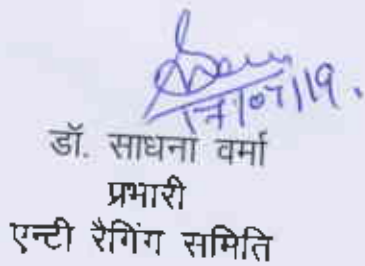 17/07/19.
डॉ. साधना वर्मा
प्रभारी
एन्टी रैगिंग समिति